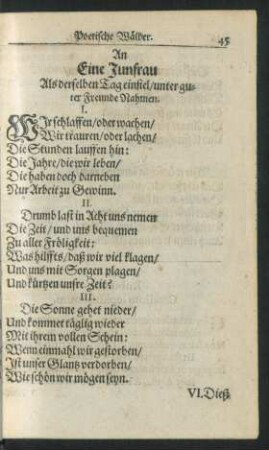 Poetische Wälder. 45
An
Eine Junfrau
Als derselben Tag einfiel/unter gu-
ter Freunde Nahmen.
I.
WIr schlaffen/oder wachen/
Wir trauren/oder lachen/
Die Stunden lauffen hin:
Die Jahre/die wir leben/
Die haben doch darneben
Nur Arbeit zu Gewinn.
II.
Drumb last in Acht uns nemen
Die Zeit/ und uns bequemen
Zu aller Fröligkeit:
Was hilffts/daß wir viel klagen/
Und uns mit Sorgen plagen/
Und kürtzen unsre Zeit?
III.
Die Sonne gehet nieder/
Und kommet täglig wieder
Mit ihrem vollen Schein:
Wenn einmahl wir gestorben/
Ist unser Glantz verdorben/
Wie schön wir mögen seyn.
VI. Dieß